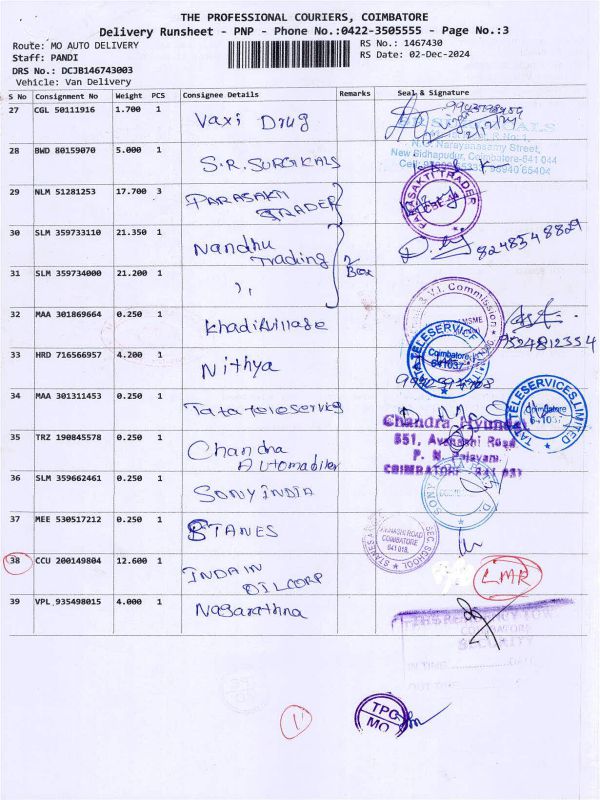 THE PROFESSIONAL COURIERS, COIMBATORE
Delivery Runsheet - PNP - Phone No.:0422-3505555 - Page No.:3
Route: MO AUTO DELIVERY
RS No.: 1467430
Staff: PANDI
RS Date: 02-Dec-2024
DRS No.: DCJB146743003
Vehicle: Van Delivery
S No Consignment No Weight PCS Consignee Details Remarks Seal & Signature
27 CGL 50111916 1.700 1 Vaxi Drug
2/12/24
N.G. Narayanasamy Street,
New Sidhapudur, Coimbatore-641 044
28 BWD 80159070 5.000 1 S.R. SURGICALS
29 NLM 51281253 17.700 3 PARASAKTI TRADER
PARASAKTI TRADER
30 SLM 359733110 21.350 1 Nandhu Trading
2 Box
8248548829
31 SLM 359734000 21.200 1 ,,
32 MAA 301869664 0.250 1 Khadi Village
V.I. Commission
9524812354
33 HRD 716566957 4.200 1 Nithya
TATA TELESERVICES
Coimbatore
641037
34 MAA 301311453 0.250 1 Tata teleservices
TATA TELESERVICES LIMITED
Coimbatore
641037
35 TRZ 190845578 0.250 1 Chandra Automobiles
Chandra Hyundai
851, Avanashi Road
P. N. Palayam,
COIMBATORE - 641 037
36 SLM 359662461 0.250 1 SONY INDIA
SONY INDIA
37 MEE 530517212 0.250 1 STANES
AVINASHI ROAD
COIMBATORE
641 018.
SEC. SCHOOL
38 CCU 200149804 12.600 1 INDAIN OIL CORP
LMR
39 VPL 935498015 4.000 1 Nagarathna
COIMBATORE
SECURITY
IN TIME
OUT TIME
TPC
MO